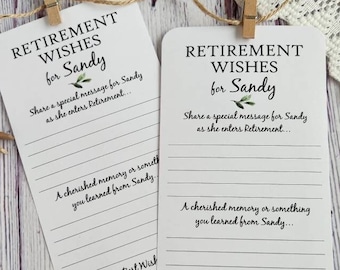 RETIREMENT
WISHES
for Sandy
Share a special message for Sandy
as she enters Retirement...
A cherished memory or something
you learned from Sandy...
RETIREMENT
WISHES
for Sandy
Share a special message for Sandy
as she enters Retirement...
A cherished memory or something
you learned from Sandy...